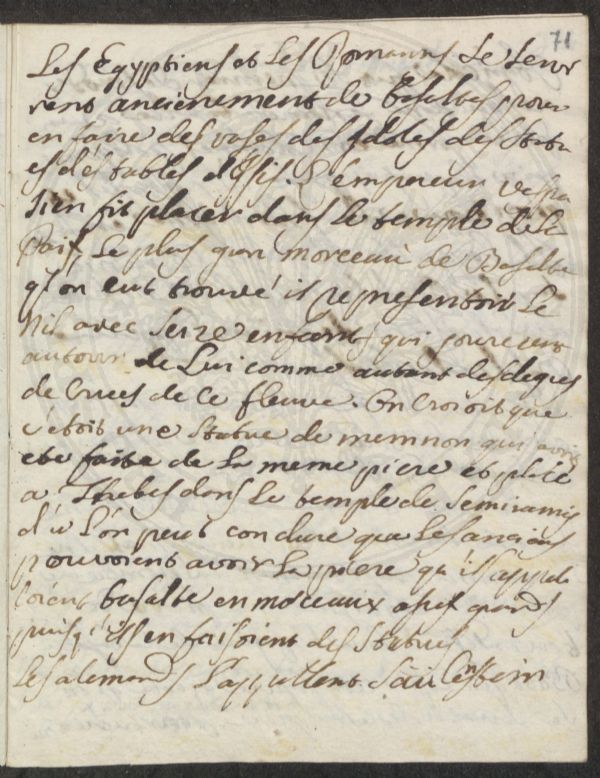 71
Les Egyptiens et Les Romains se servi
rent anciènement de Basaltes pour
en faire des vases des Idoles des Statu
es des tables d'Isis. L'empereur vespa
sien fit placer dans le temple de la
Paix Le plus gran morceau de Basalte
qu'on eut trouvé il representoit Le
Nil avec seize enfants qui jouoient
autour de Lui comme autant des degres
de Crues de Ce fleuve. On Croioit que
c'étoit une statue de memnon qui avoit
eté faite de la meme piere et placé
a Thebes dans Le temple de Semiramis
d'u L'on peut conclure que Les anciens
pouvoient avoir La piere qu'ils appe
loient basalte en morceaux assez grands
puisqu'ils en faisoient des Statues
Les alemands L'appellent Säulenstein